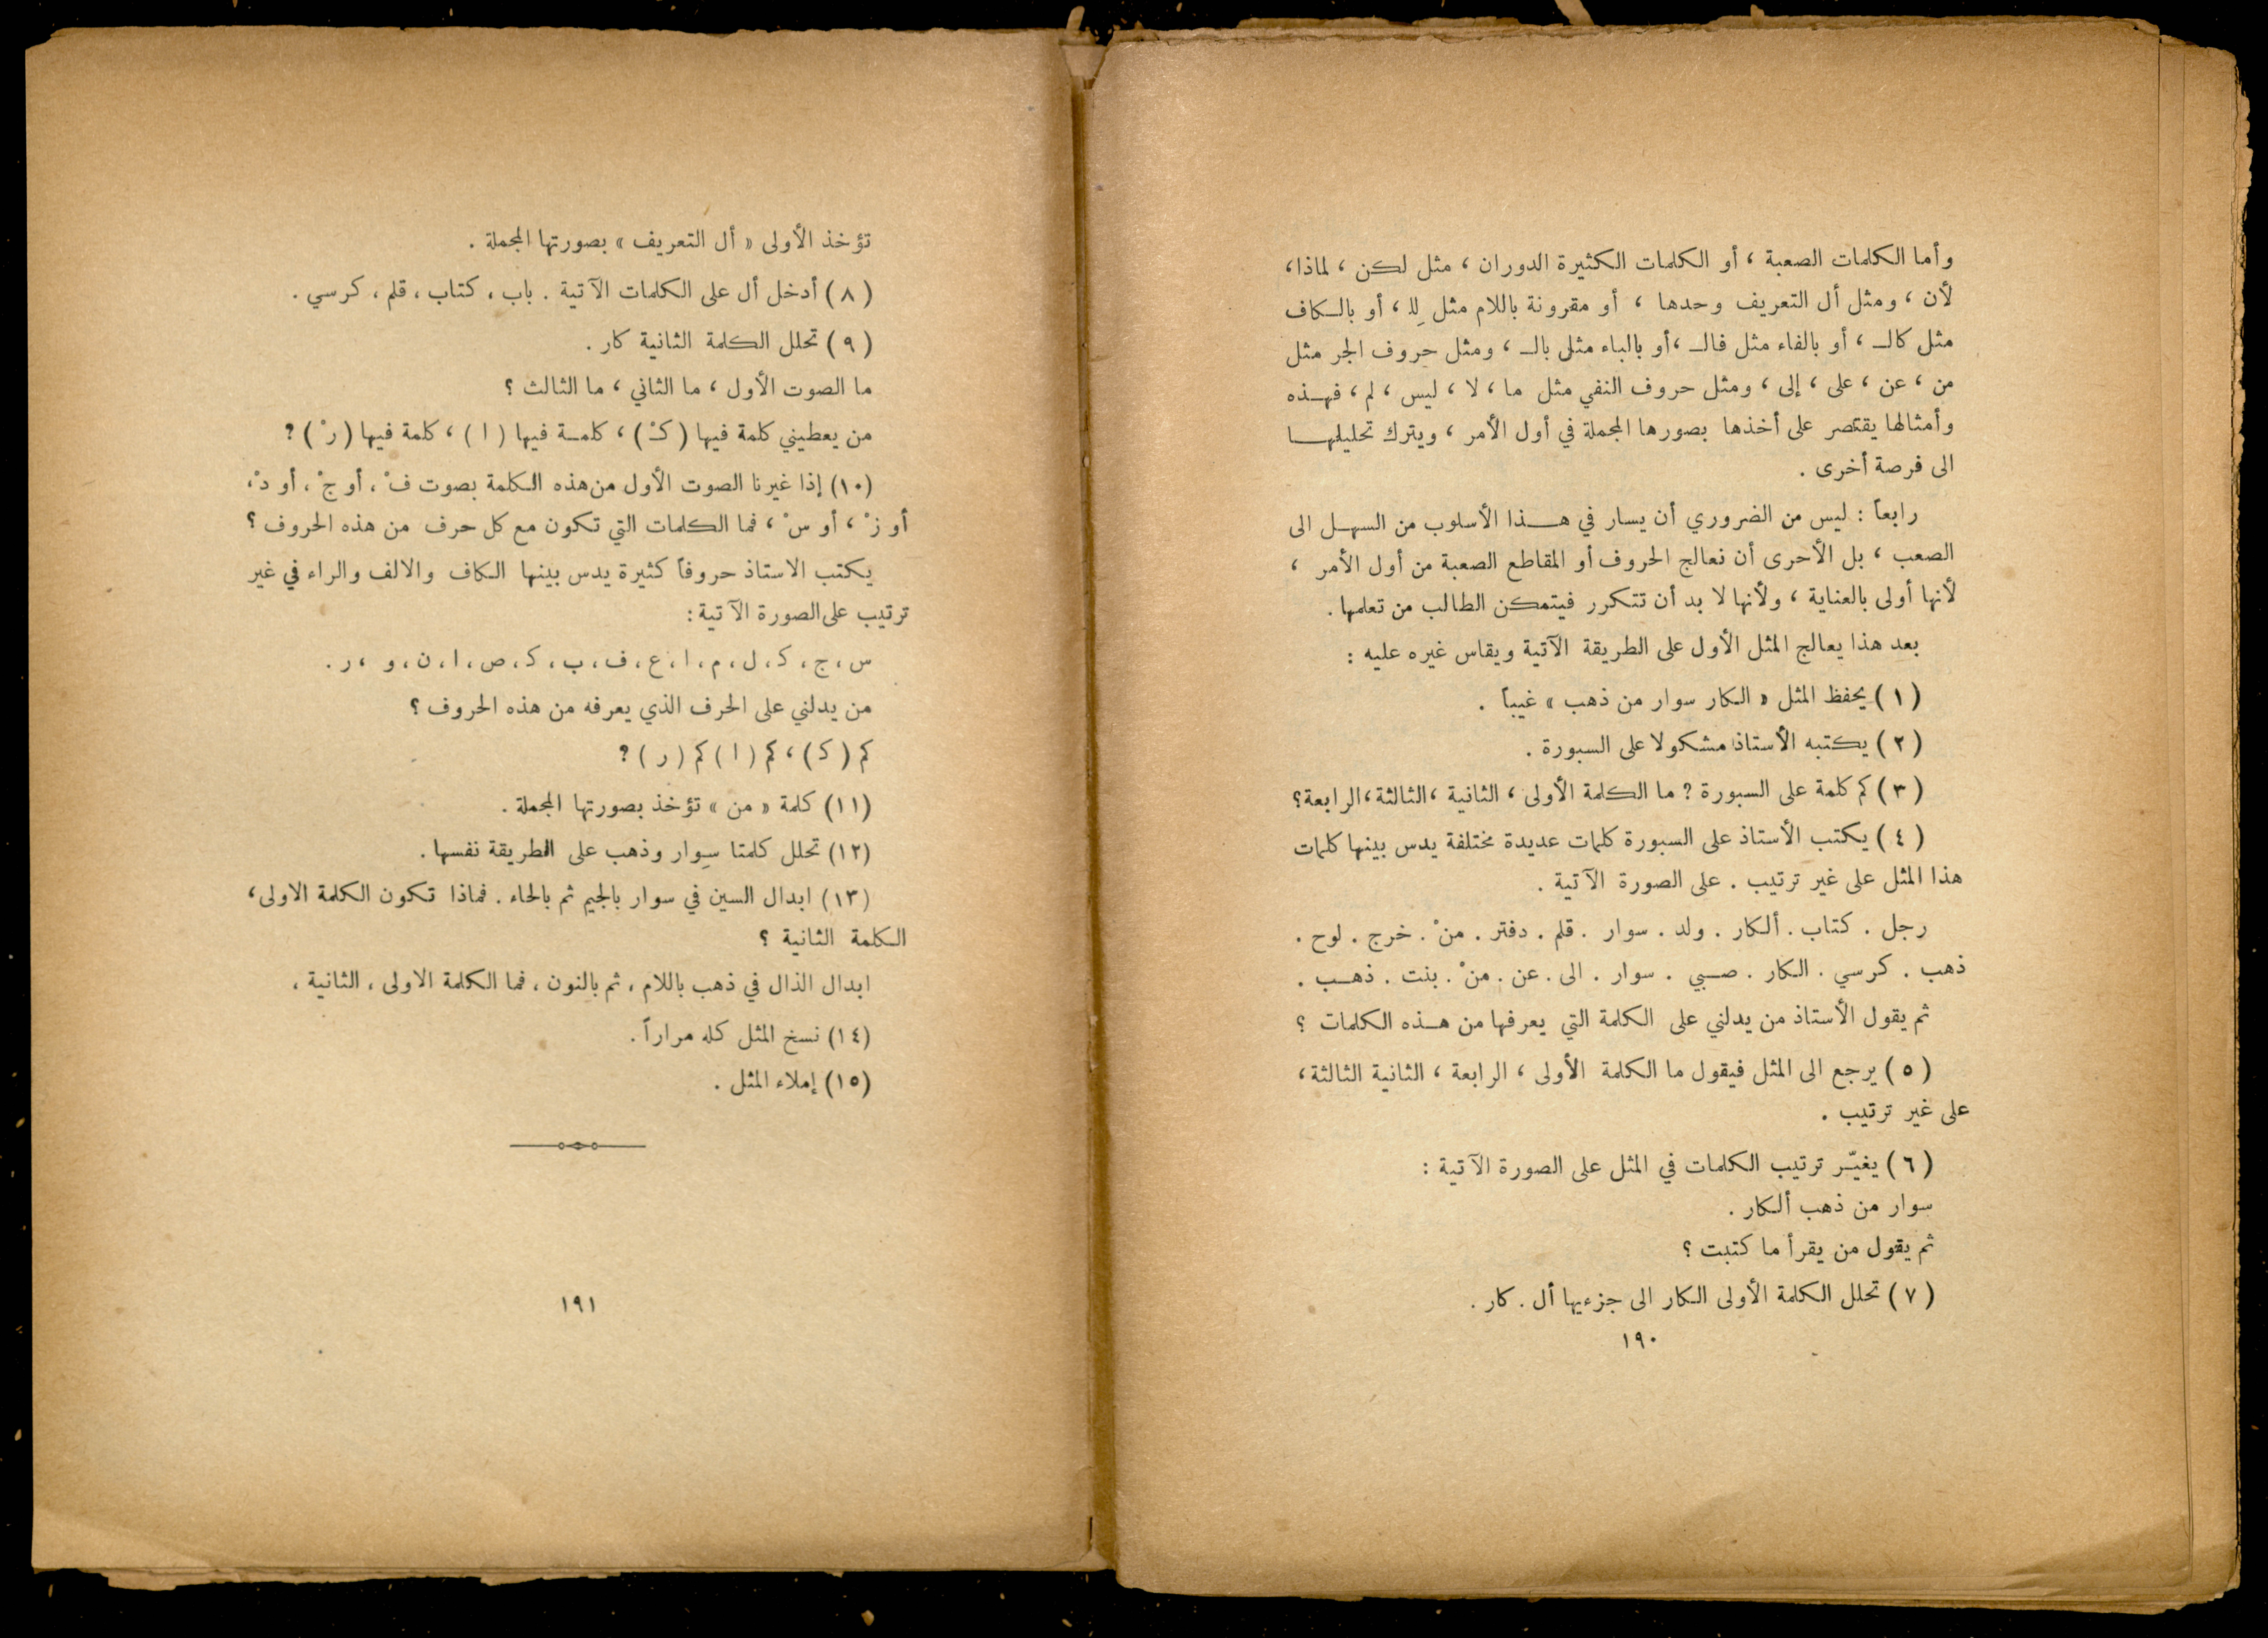 وأما الكلمات الصعبة ، أو الكلمات الكثيرة الدوران ، مثل لكن ، لماذا ،
لأن ، ومثل أل التعريف وحدها ، أو مقرونة باللام مثل لِلـ ، أو بالـكاف
مثل كالـ ، أو بالفاء مثل فالـ ، أو بالباء مثل بالـ ، ومثل حروف الجر مثل
من ، عن ، على ، إلى ، ومثل حروف النفي مثل ما ، لا ، ليس ، لم ، فهـذه
وأمثالها يقتصر على أخذها بصورها المجملة في أول الأمر ، ويترك تحليلهـا
الى فرصة أخرى .
رابعاً : ليس من الضروري أن يسار في هـذا الأسلوب من السهـل الى
الصعب ، بل الأحرى أن نعالج الحروف أو المقاطع الصعبة من أول الأمر ،
لأنها أولى بالعناية ، ولأنها لا بد أن تتكرر فيتمكن الطالب من تعلمها .
بعد هذا يعالج المثل الأول على الطريقة الآتية ويقاس غيره عليه :
( ١ ) يحفظ المثل « الكار سوار من ذهب » غيباً .
( ٢ ) يكتبه الأستاذ مشكولا على السبورة .
( ٣ ) كم كلمة على السبورة ؟ ما الكلمة الأولى ، الثانية ، الثالثة ، الرابعة ؟
( ٤ ) يكتب الأستاذ على السبورة كلمات عديدة مختلفة يدس بينها كلمات
هذا المثل على غير ترتيب . على الصورة الآتية .
رجل . كتاب . ألكار . ولد . سوار . قلم . دفتر . منْ . خرج . لوح .
ذهب . كرسي . الكار . صـبي . سوار . الى . عن . منْ . بنت . ذهـب .
ثم يقول الأستاذ من يدلني على الكلمة التي يعرفها من هـذه الكلمات ؟
( ٥ ) يرجع الى المثل فيقول ما الكلمة الأولى ، الرابعة ، الثانية الثالثة ،
على غير ترتيب .
( ٦ ) يغيّـر ترتيب الكلمات في المثل على الصورة الآتية :
سوار من ذهب ألكار .
ثم يقول من يقرأ ما كتبت ؟
( ٧ ) تحلل الكلمة الأولى الكار الى جزءيها أل . كار .
١٩٠
تؤخذ الأولى « أل التعريف » بصورتها المجملة .
( ٨ ) أدخل أل على الكلمات الآتية . باب ، كتاب ، قلم ، كرسي .
( ٩ ) تحلل الكلمة الثانية كار .
ما الصوت الأول ، ما الثاني ، ما الثالث ؟
من يعطيني كلمة فيها ( كـْ ) ، كلمـة فيها ( ا ) ، كلمة فيها ( رْ ) ؟
(١٠) إذا غيرنا الصوت الأول من هذه الكلمة بصوت فْ ، أو جْ ، أو دْ ،
أو زْ ، أو سْ ، فما الكلمات التي تكون مع كل حرف من هذه الحروف ؟
يكتب الاستاذ حروفاً كثيرة يدس بينها الكاف والالف والراء في غير
ترتيب على الصورة الآتية :
س ، ج ، كـ ، ل ، م ، ا ، ع ، ف ، ب ، كـ ، ص ، ا ، ن ، و ، ر .
من يدلني على الحرف الذي يعرفه من هذه الحروف ؟
كم ( كـ ) ، كم ( ا ) كم ( ر ) ؟
(١١) كلمة « من » تؤخذ بصورتها المجملة .
(١٢) تحلل كلمتا سِوار وذهب على الطريقة نفسها .
(١٣) ابدال السين في سوار بالجيم ثم بالحاء . فماذا تكون الكلمة الاولى ،
الكلمة الثانية ؟
ابدال الذال في ذهب باللام ، ثم بالنون ، فما الكلمة الاولى ، الثانية ،
(١٤) نسخ المثل كله مراراً .
(١٥) إملاء المثل .
١٩١